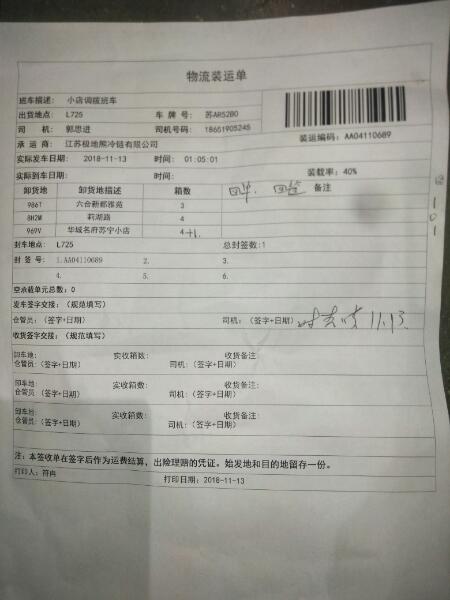 物流装运单
班车描述： 小店调拨班车
出货地点： L725 车 牌 号： 苏AR52B0
司 机： 郭思进 司机号码： 18651905245
装运编码：AA04110689
承 运 商： 江苏极地熊冷链有限公司
实际发车日期： 2018-11-13 时间： 01:05:01
实际到车日期： 时间： 装载率：40%
卸货地 卸货地描述 箱数 回单. 备注
986T 六合新都雅苑 3
8H2M 莉湖路 4
969V 华城名府苏宁小店 4+1.
封车地点： L725 总封签数：1
封 签 号： 1.AA04110689 2. 3.
4. 5. 6.
空承载单元总数：0
发车签字交接：（规范填写）
仓管员：（签字+日期） 司机：（签字+日期） 11.13
收货签字交接：（规范填写）
卸车地： 实收箱数： 收货备注：
仓管员：（签字+日期） 司机：（签字+日期）
卸车地： 实收箱数： 收货备注：
仓管员：（签字+日期） 司机：（签字+日期）
卸车地： 实收箱数： 收货备注：
仓管员：（签字+日期） 司机：（签字+日期）
注：本签收单在签字后作为运费结算，出险理赔的凭证。始发地和目的地留存一份。
打印人：符冉 打印日期：2018-11-13